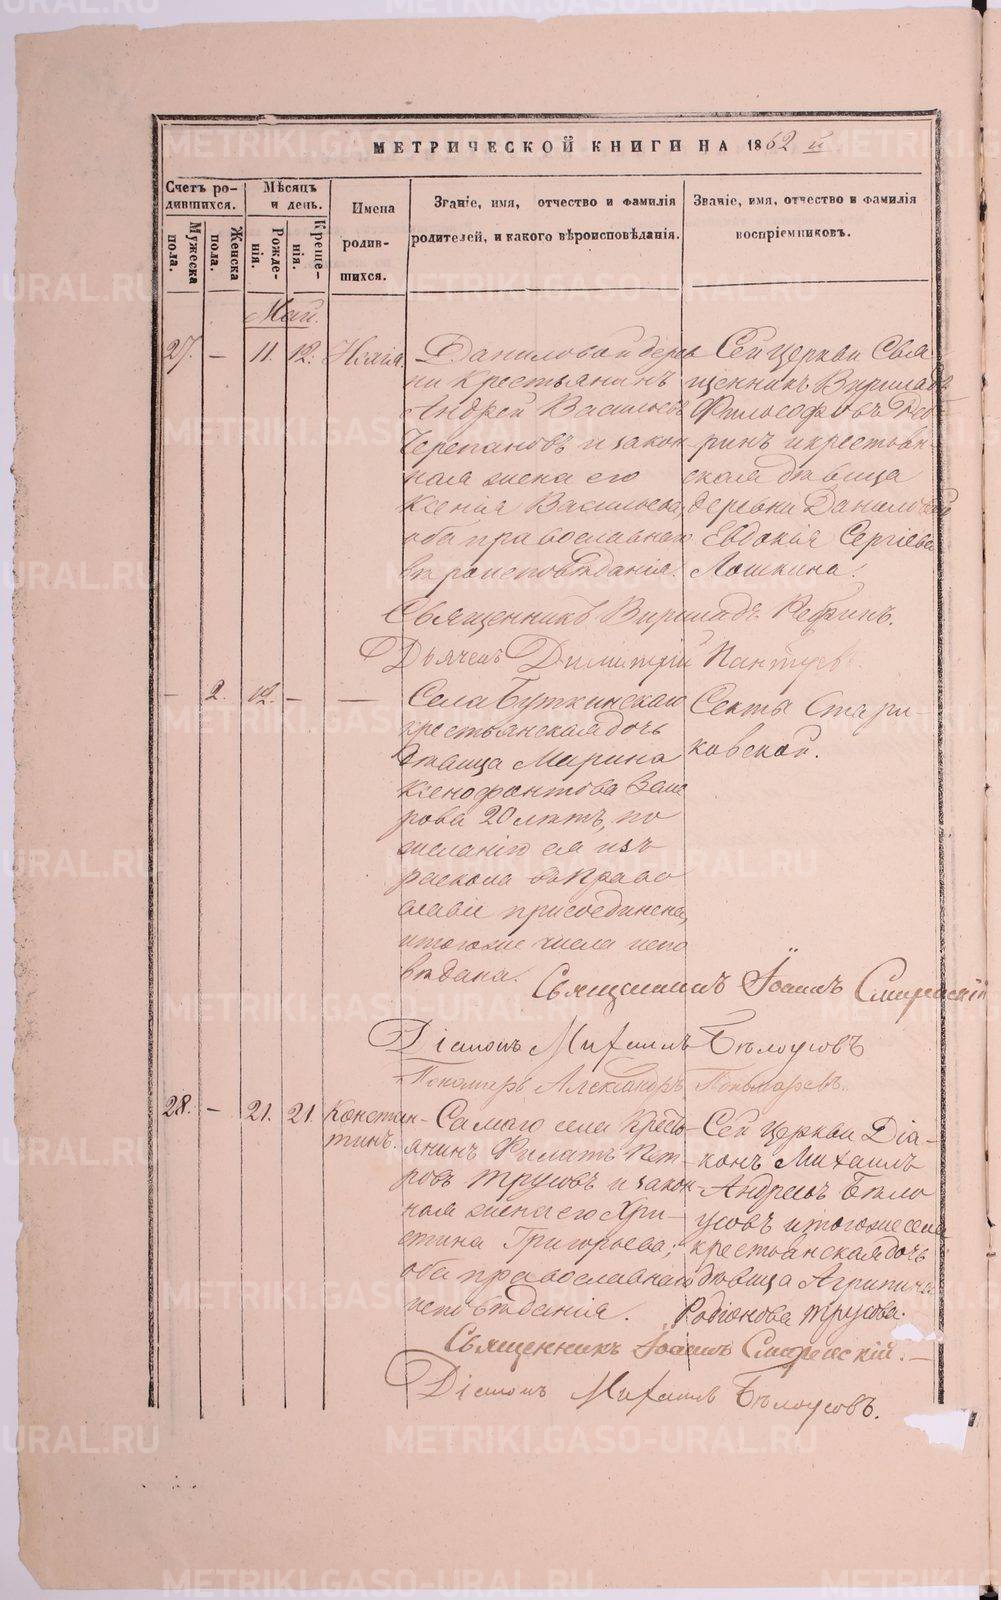 МЕТРИЧЕСКОЙ КНИГИ НА 1862 й
Счетъ ро-
дившихся.
Мѣсяцъ
и день.
Имена
родив-
шихся.
Званіе, имя, отчество и фамилія
родителей, и какого вѣроисповѣданія.
Званіе, имя, отчество и фамилія
воспріемниковъ.
Мужеска
пола.
Женска
пола.
Рожде-
нія.
Креще-
нія.
Май.
27. — 11. 12. Исаія
Даниловой дерев
ни крестьянинъ
Андрей Васильевъ
Черепановъ и закон
ная жена его
Ксенія Васильева,
оба православнаго
вѣроисповѣданія.
Сей церкви Свя
щенникъ
Философовъ
ринъ и крестьян-
ская дѣвица
деревни Даниловой
Евдокія Сергіева
Лошкина.
Священникъ
Дьячекъ Димитрій Пантуевъ.
— 2. 12. — —
Села Буткинскаго
крестьянская дочь
дѣвица Марина
Ксенофонтова
рова 20 лѣтъ, по
желанію ея изъ
раскола въ право
славіе присоединена,
и того же числа испо
вѣдана.
Секты Стари-
ковской.
Священникъ Іоаннъ
Діаконъ Михаилъ Бѣлоусовъ
Пономарь Александръ Пономаревъ.
28. — 21. 21. Констан-
тинъ.
Самаго села кресть-
янинъ Филатъ Пет-
ровъ Трусовъ и закон-
ная жена его Хри-
стина Григорьева,
оба православнаго
исповѣданія.
Сей церкви Діа-
конъ Михаилъ
Андреевъ Бѣло
усовъ и того же села
крестьянская дочь
дѣвица Агрипина
Родіонова Трусова.
Священникъ Іоаннъ
Діаконъ Михаилъ Бѣлоусовъ.
METRIKI.GASO-URAL.RU